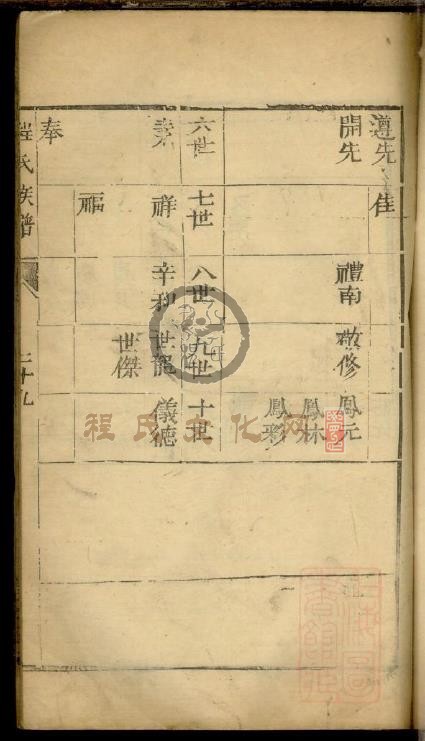 遵先 佳
開先 禮南 敬修 鳳元
鳳林
鳳彩
六世 七世 八世 九世 十世
素 祥 辛和 世龍 儀德
世傑
福
奉
程氏族譜 二十九
程氏文化网